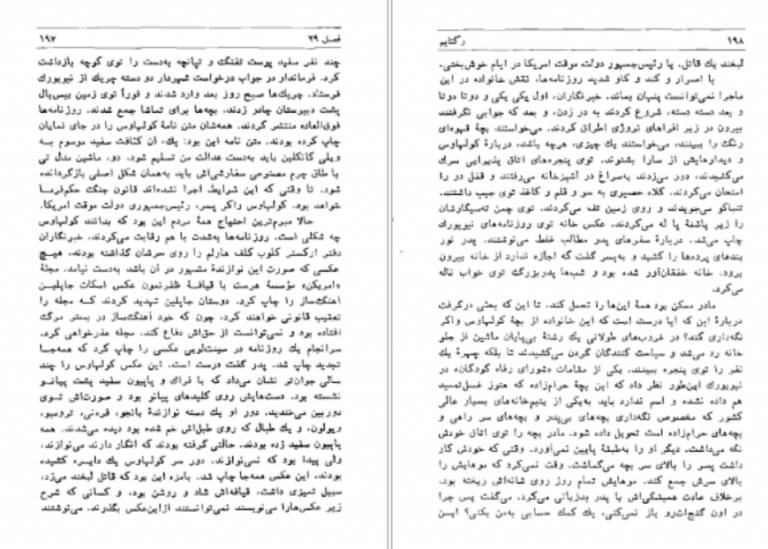 ۱۹۷
فصل ۲۹
چند نفر سفید پوست تفنگ و تپانچه به‌دست را توی کوچه بازداشت
کرد. فرماندار در جواب درخواست شهردار دو دسته چریك از نیویورك
فرستاد، چریك‌ها صبح روز بعد وارد شدند و فوراً توی زمین بیس‌بال
پشت دبیرستان چادر زدند. بچه‌ها برای تماشا جمع شدند. روزنامه‌ها
فوق‌العاده منتشر کردند. همه‌شان متن نامهٔ کولهاوس را در جای نمایان
چاپ کرده بودند. متن نامه این بود: یك، آن کثافت سفید موسوم به
ویلی کانکلین باید به‌دست عدالت من تسلیم شود. دو، ماشین مدل تی
با طاق چرم مصنوعی سفارشی‌اش باید به‌همان شکل اصلی بازگردانده
شود. تا وقتی که این شرایط اجرا نشده‌اند قانون جنگ حکم‌فرما
خواهد بود. کولهاوس واکر پسر، رئیس‌جمهوری دولت موقت امریکا.
حالا مبرم‌ترین احتیاج همهٔ مردم این بود که بدانند کولهاوس
چه شکلی است. روزنامه‌ها به‌شدت با هم رقابت می‌کردند. خبرنگاران
دفتر ارکستر کلوب کلف هارلم را روی سرشان گذاشته بودند. هیچ
عکسی که صورت این نوازندهٔ مشهور در آن باشد به‌دست نیامد. مجلهٔ
«امریکن» مؤسسهٔ هرست با قیافهٔ ظفرنمون عکس اسکات جاپلین
آهنگ‌ساز را چاپ کرد. دوستان جاپلین تهدید کردند که مجله را
تعقیب قانونی خواهند کرد، چون که خود آهنگ‌ساز در بستر مرگ
افتاده بود و نمی‌توانست از حق‌اش دفاع کند. مجله عذرخواهی کرد.
سرانجام یك روزنامه در سینت‌لویی عکسی را چاپ کرد که همه‌جا
تجدید چاپ شد. پدر گفت درست است. این عکس کولهاوس را چند
سالی جوان‌تر نشان می‌داد که با فراك و پاپیون سفید پشت پیانو
نشسته بود. دست‌هایش روی کلیدهای پیانو بود و صورت‌اش توی
دوربین می‌خندید. دور او یك دسته نوازندهٔ بانجو، قره‌نی، ترومبو،
ویولون، و یك طبال که روی طبل‌اش خم شده بود دیده می‌شدند. همه
پاپیون سفید زده بودند. حالتی گرفته بودند که انگار دارند می‌نوازند،
ولی پیدا بود که نمی‌نوازند. دور سر کولهاوس یك دایره کشیده
بودند. این عکس همه‌جا چاپ شد. بامزه این بود که قاتل لبخند می‌زد،
سبیل تمیزی داشت، قیافه‌اش شاد و روشن بود، و کسانی که شرح
زیر عکس‌هارا می‌نویسند نمی‌توانستند ازاین‌عکس بگذرند. می‌نوشتند
رگتایم
۱۹۸
لبخند یك قاتل. یا رئیس‌جمهور دولت موقت امریکا در ایام خوش‌بختی.
با اصرار و کند و کاو شدید روزنامه‌ها، نقش خانواده در این
ماجرا نمی‌توانست پنهان بماند. خبرنگاران، اول یکی یکی و دوتا دوتا
و بعد دسته دسته، شروع کردند به در زدن، و بعد که جوابی نگرفتند
بیرون در زیر افراهای نروژی اطراق کردند. می‌خواستند بچهٔ قهوه‌ای
رنگ را ببینند، می‌خواستند یك چیزی، هرچه باشد، دربارهٔ کولهاوس
و دیدارهایش از سارا بشنوند. توی پنجره‌های اتاق پذیرایی سرك
می‌کشیدند، دور می‌زدند به‌سراغ در آشپزخانه می‌رفتند و قفل در را
امتحان می‌کردند. کلاه حصیری به سر و قلم و کاغذ توی جیب داشتند.
تنباکو می‌جویدند و روی زمین تف می‌کردند. توی چمن ته‌سیگارشان
را زیر پاشنهٔ پا له می‌کردند. عکس خانه توی روزنامه‌های نیویورك
چاپ می‌شد. دربارهٔ سفرهای پدر مطالب غلط می‌نوشتند. پدر نور
بندهای پرده‌ها را کشید و به‌پسر گفت که اجازه ندارد از خانه بیرون
برود. خانه خفقان‌آور شده بود و شب‌ها پدربزرگ توی خواب ناله
می‌کرد.
مادر ممکن بود همهٔ این‌ها را تحمل کند، تا این که بحثی درگرفت
دربارهٔ این که آیا درست است که این خانواده از بچهٔ کولهاوس واکر
نگه‌داری کند! در غروب‌های طولانی یك رشتهٔ بی‌پایان ماشین از جلو
خانه رد می‌شد و سیاحت کنندگان گردن می‌کشیدند تا بلکه چهرهٔ یك
نفر را توی پنجره ببینند. یکی از مقامات «شورای رفاه کودکان» در
نیویورك این‌طور نظر داد که این بچهٔ حرام‌زاده که هنوز غسل‌تعمید
هم داده نشده و اسم ندارد باید به‌یکی از یتیم‌خانه‌های بسیار عالی
کشور که مخصوص نگه‌داری بچه‌های بی‌پدر و بچه‌های سر راهی و
بچه‌های حرام‌زاده است تحویل داده شود. مادر بچه را توی اتاق خودش
نگه می‌داشت. دیگر او را به‌طبقهٔ پایین نمی‌آورد. وقتی که خودش کار
داشت پسر را بالای سر بچه می‌گماشت. وقت نمی‌کرد که موهایش را
بالای سرش جمع کند. موهایش تمام روز روی شانه‌اش ریخته بود.
برخلاف عادت همیشگی‌اش با پدر بدزبانی می‌کرد. می‌گفت پس چرا
در اون گنج‌ات‌رو باز نمی‌کنی، یك کمك حسابی به‌من بکنی؟ ایسن